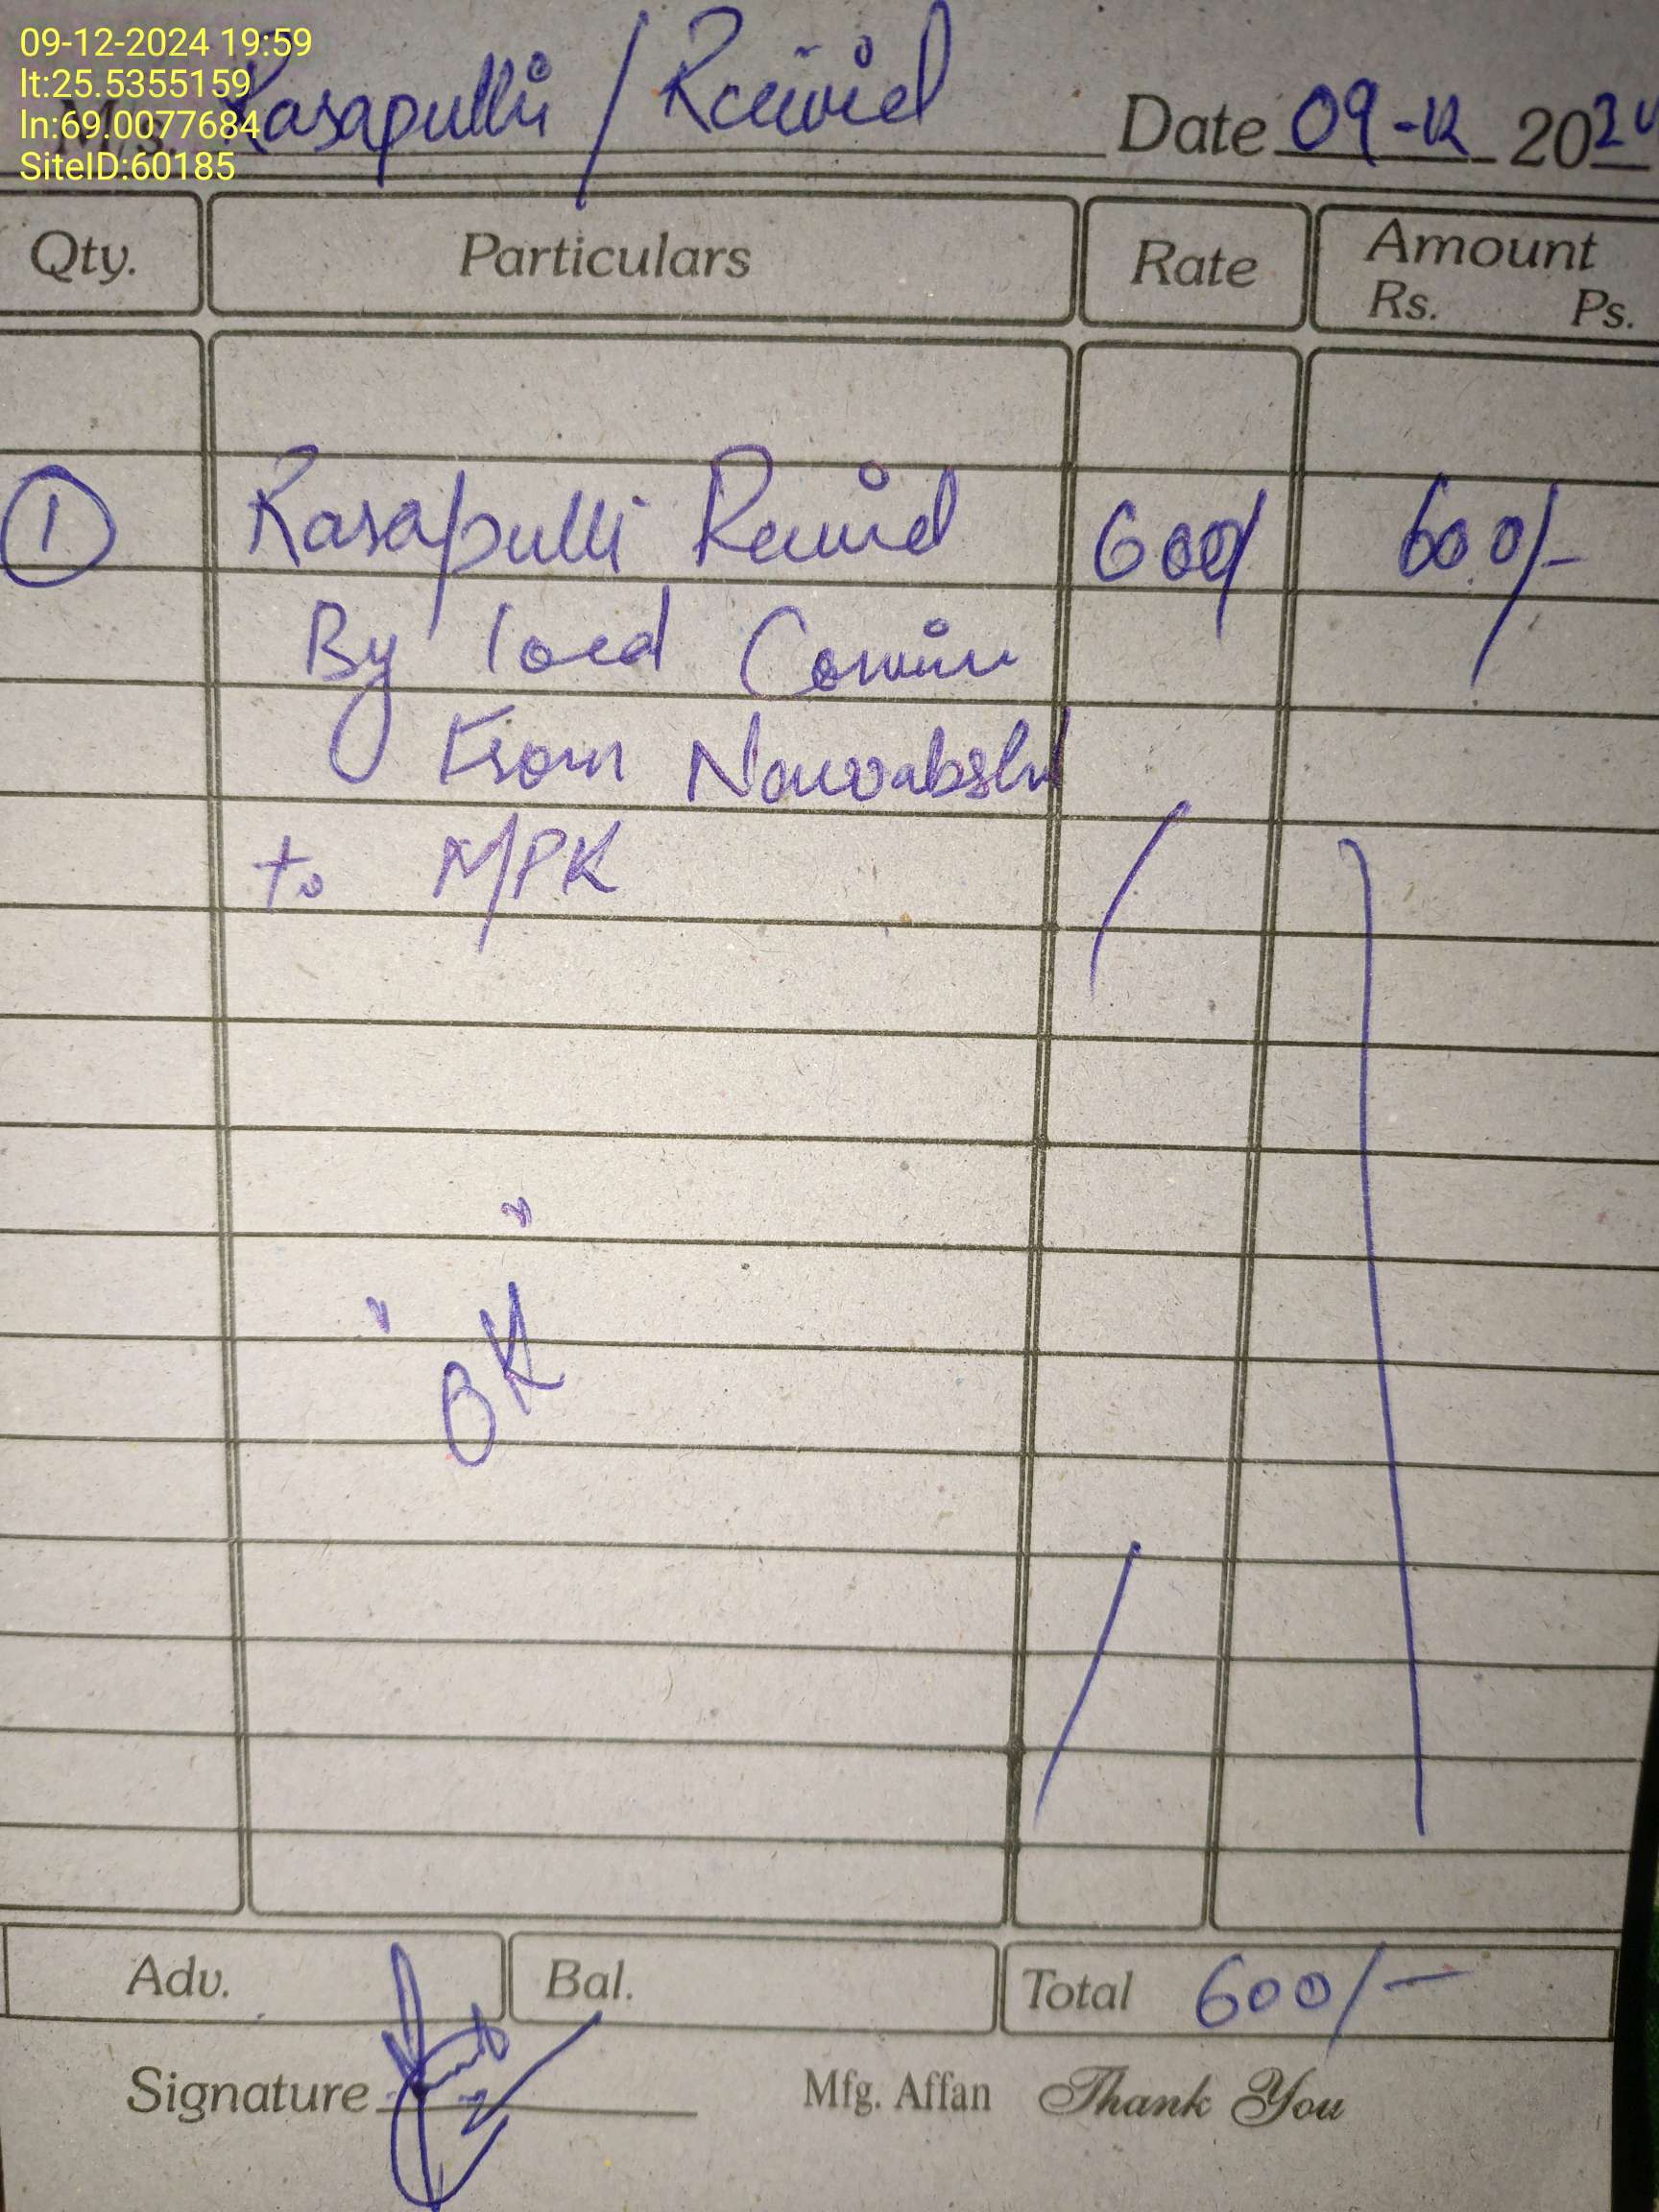 09-12-2024 19:59
lt:25.5355159
ln:69.0077684
SiteID:60185
M/s. Rasapulli / Received Date 09-12 2024
Qty. Particulars Rate Amount
Rs. Ps.
1 Rasapulli Received 600/ 600/-
By local Courier
From Nawabshah
to MPK
"OK"
Adv. Bal. Total 600/-
Signature Mfg. Affan Thank You